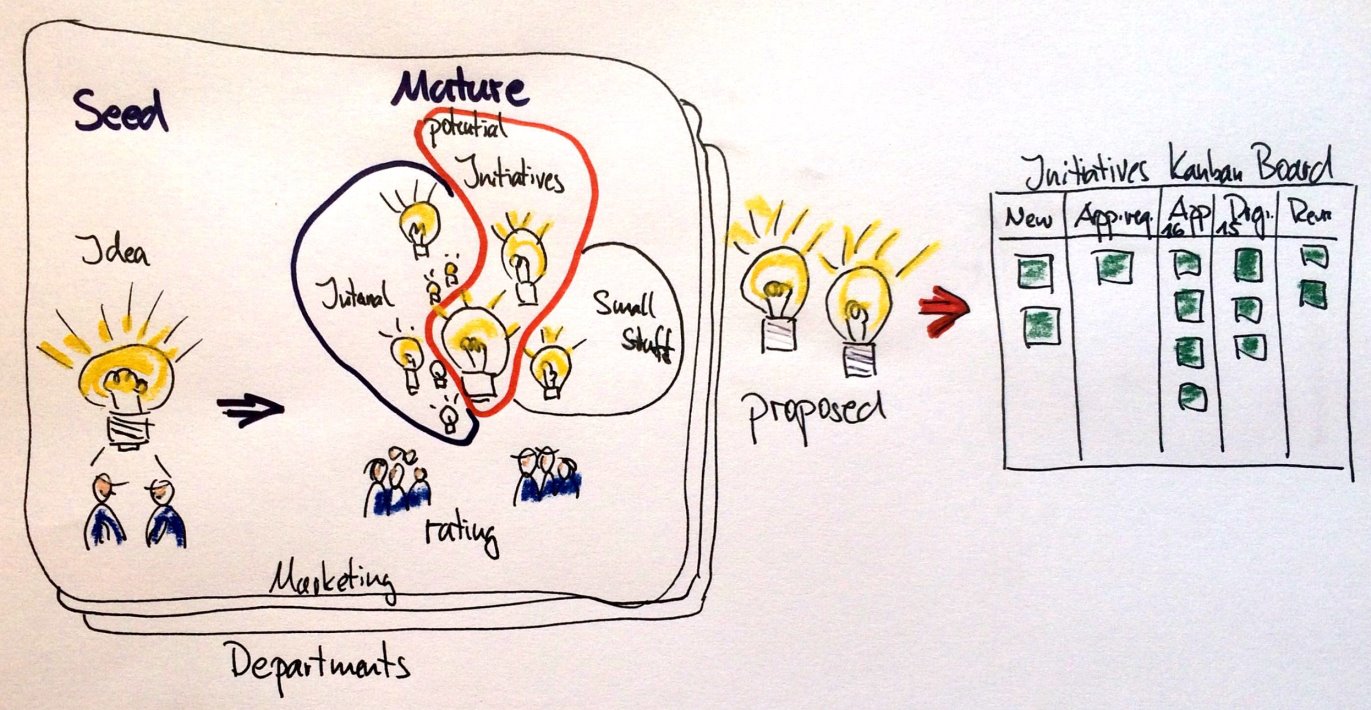 Seed
Mature
potential
Initiatives
Idea
Internal
Small
Stuff
rating
Marketing
Departments
proposed
Initiatives Kanban Board
New
App.req.
App
16
15